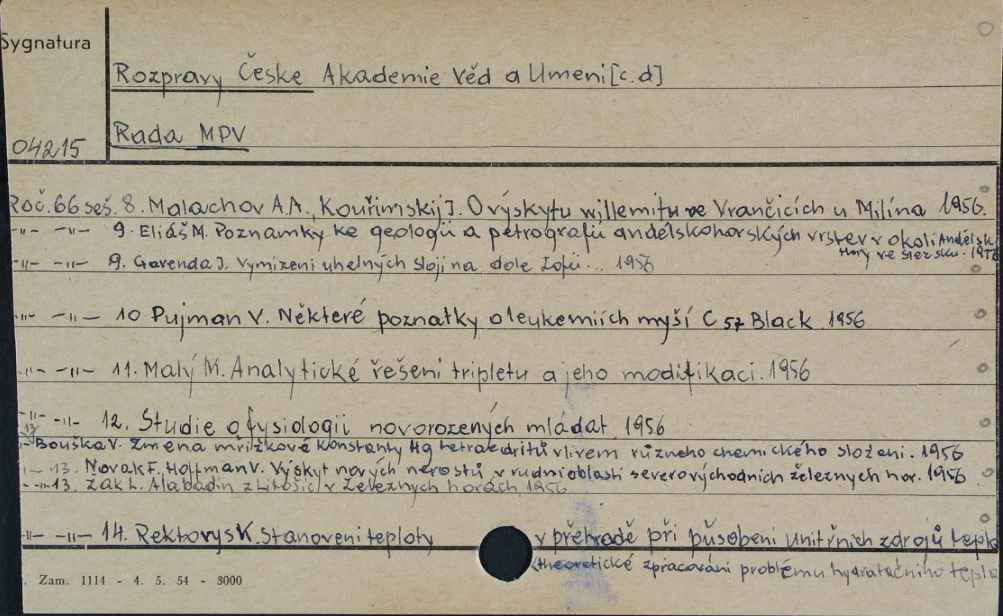 Sygnatura
Rozpravy Česke Akademie Věd a Umeni [c.d]
04215
Rada MPV
Roč. 66 seš. 8. Malachov A.A., Kouřimskij J. O výskytu willemitu ve Vrančicích u Milína 1956.
-"- -"- 9. Eliáš M. Poznamky ke geologii a petrografii andělskohorských vrstev v okoli Anděls
Hory ve Slezsku. 195
-"- -"- 9. Gavenda J. Vymizeni uhelných slojí na dole Zofii... 1956
-"- -"- 10 Pujman V. Některé poznatky o leukemiích myší C 57 Black 1956
-"- -"- 11. Malý M. Analytické řešeni tripletu a jeho modifikaci. 1956
-"- -"- 12. Studie o fysiologii novorozených mláďat 1956
13 Bouška V. Změna mřížkové konstanty Hg tetraedritů vlivem různeho chemického složeni. 1956
-"- 13. Novak F. Hoffman V. Výskyt nových nerostů v rudní oblasti severovýchodnich železnych hor. 1956
-"- 13. Žák L. Alabadin z Litošic v Železnych horách 1956
-"- -"- 14. Rektorys K. Stanoveni teploty v přehradě při působeni vnitřnich zdrojů tepla
(theoretické zpracováni problému hydratačního tepla
. Zam. 1114 - 4. 5. 54 - 3000